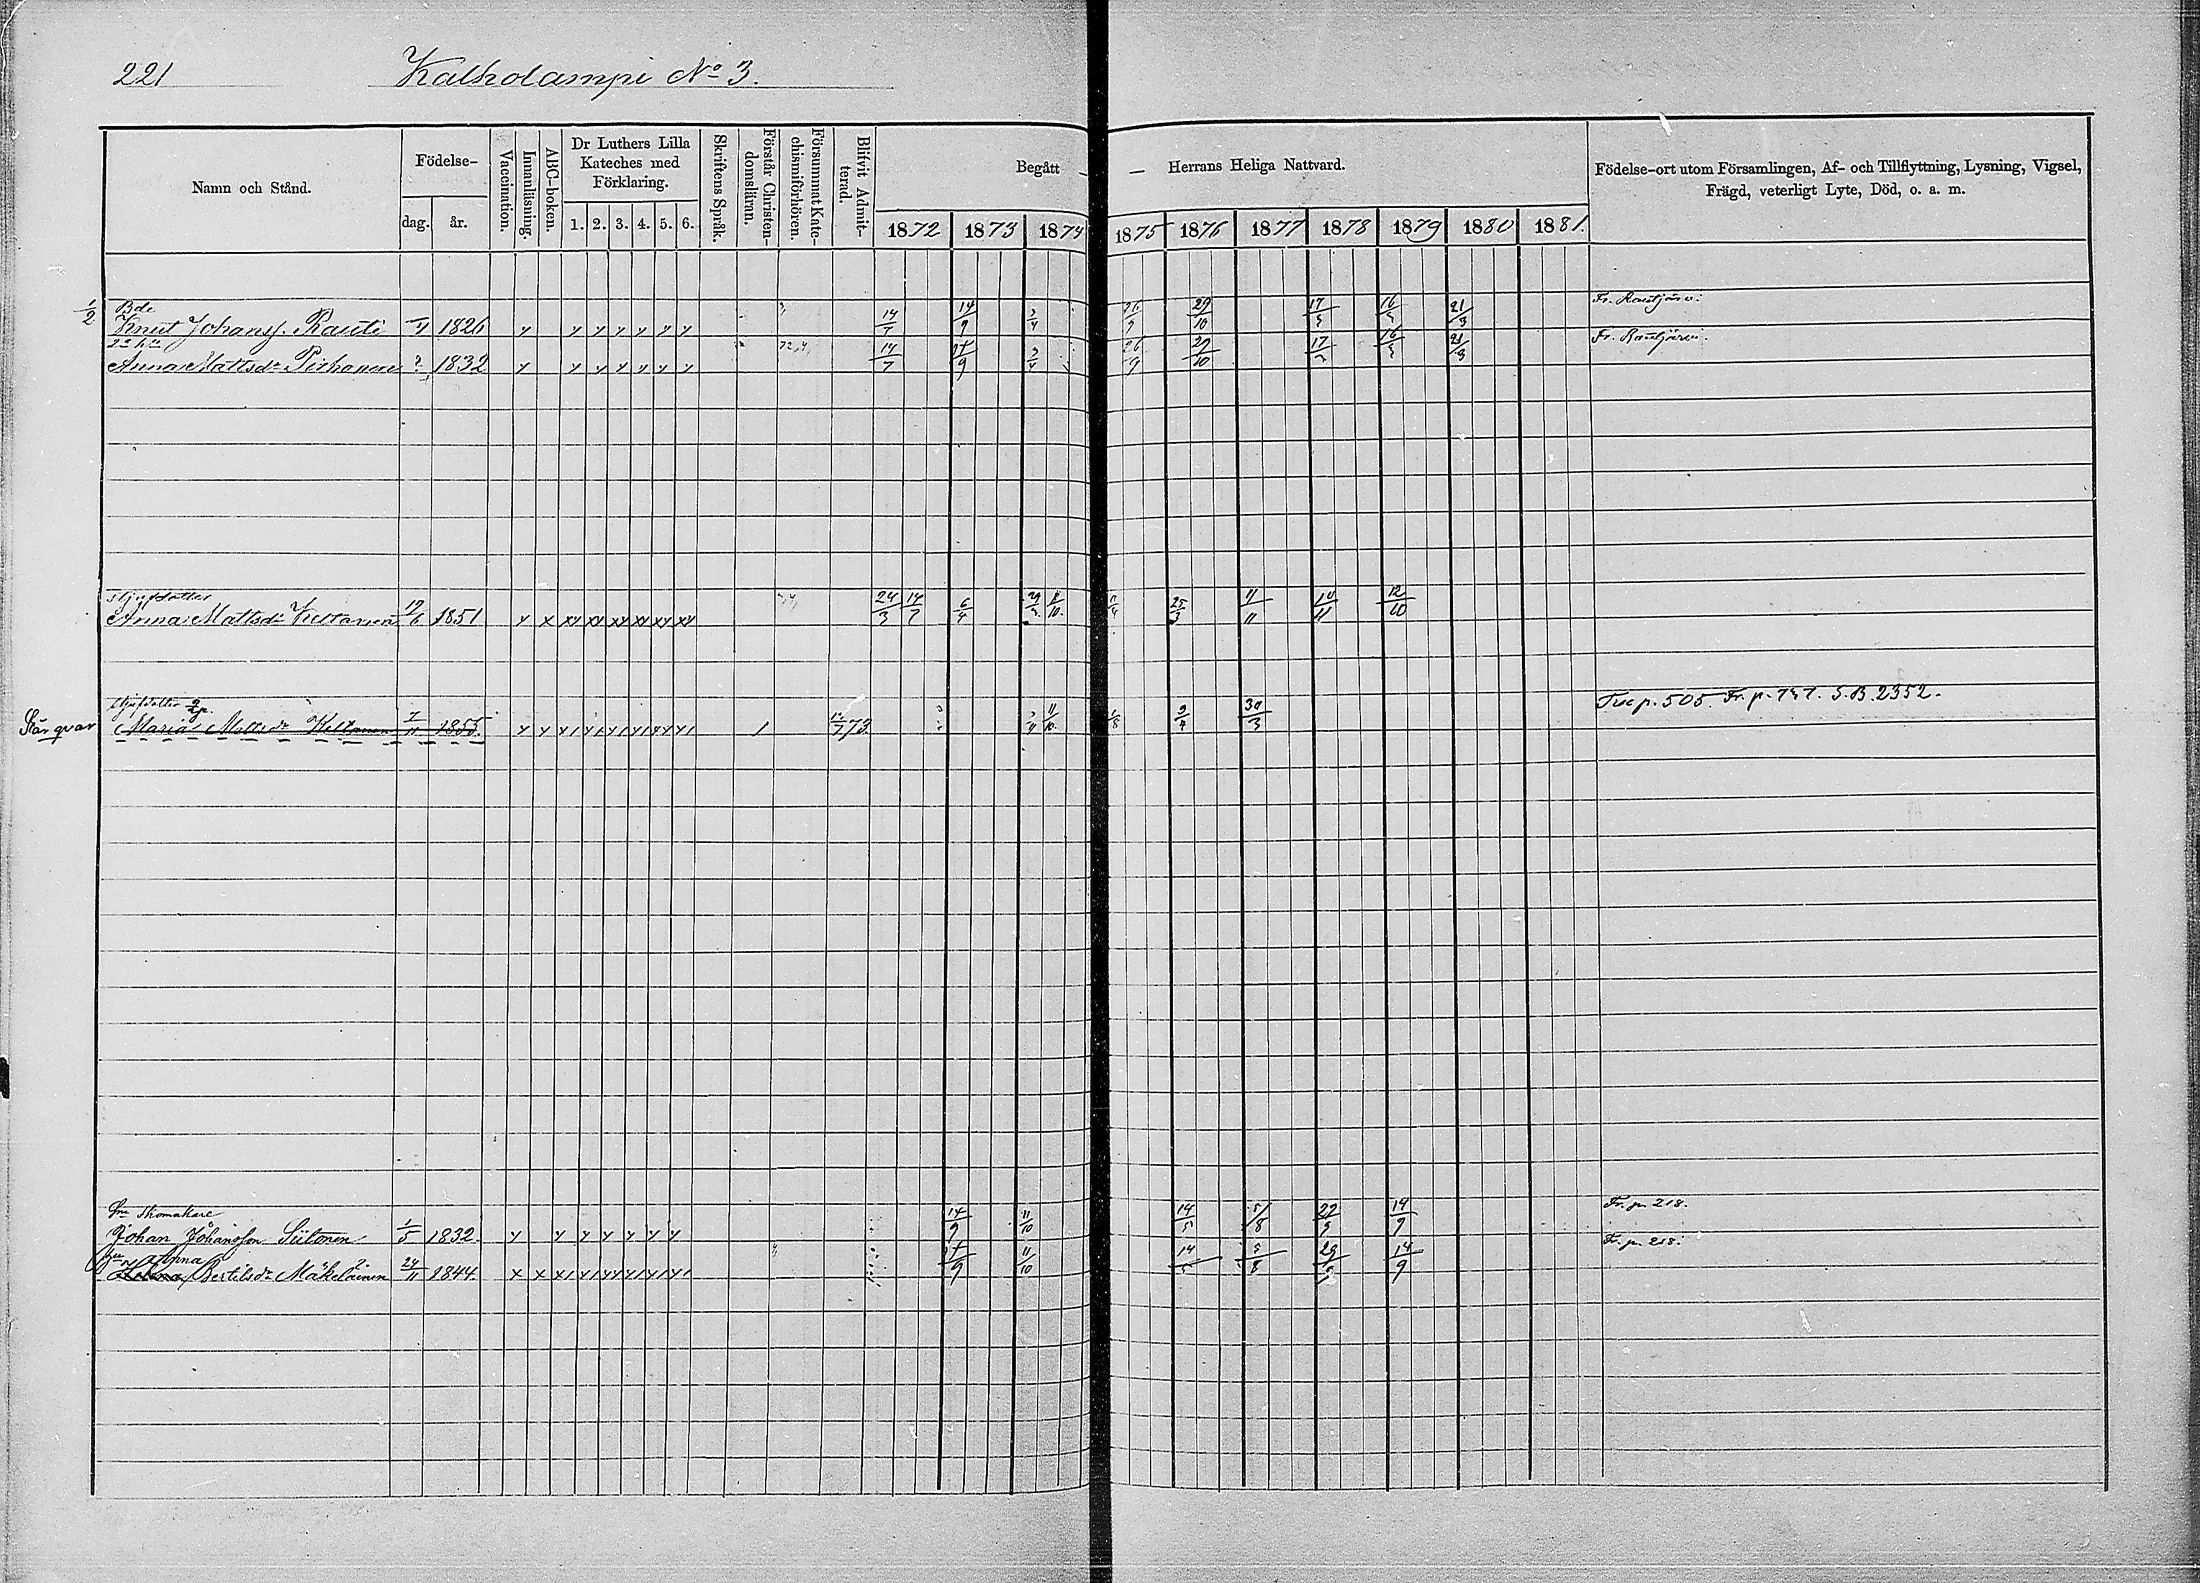 221 Kalholampi No 3.
Namn och Stånd.
Födelse-
dag. år.
Vaccination.
Innanläsning.
ABC-boken.
Dr Luthers Lilla
Kateches med
Förklaring.
1. 2. 3. 4. 5. 6.
Skriftens Språk.
Förstår Christen-
domsläran.
Försummat Kate-
chismiförhören.
Blifvit Admit-
terad.
Begått — — Herrans Heliga Nattvard.
1872 1873 1874 1875 1876 1877 1878 1879 1880 1881.
Födelse-ort utom Församlingen, Af- och Tillflyttning, Lysning, Vigsel,
Frägd, veterligt Lyte, Död, o. a. m.
1/2 Bde Fr. Rautjärvi
Knut Johanss. Rauti 1826 y y y y y y y 14/7 14/9 3/4 26/9 29/10 17/3 16/3 21/3
2a hu Fr. Rautjärvi.
Anna Mattsdr Pirhonen 1832 y y y y y y y 14/7 9 3/4 26/9 29/10 17 16/3 21/3
Styfdotter
Anna Mattsdr Keltanen 19/6 1851 y x xy xy xy xy xy xy 24/3 14/7 6/4 11/10. 11/4 25/3 11/11 10/11 12/10
Styfdotter Tr. p. 505. Fr. p. 747. S.B. 2352.
Står qvar Maria Mattsdr Keltanen 7/11 1855. 1 /7 73. 11/10. 1/8 9/4 30/3
Skomakare Fr. p. 218.
Johan Johansson Siitonen 1/5 1832. y y y y y y y 14/9 11/10 14/5 5/8 29/9 14/9
Anna Fr. p. 218.
Bertilsdr Mäkeläinen 24/11 1844 9 11/10 14 5/8 29 14/9